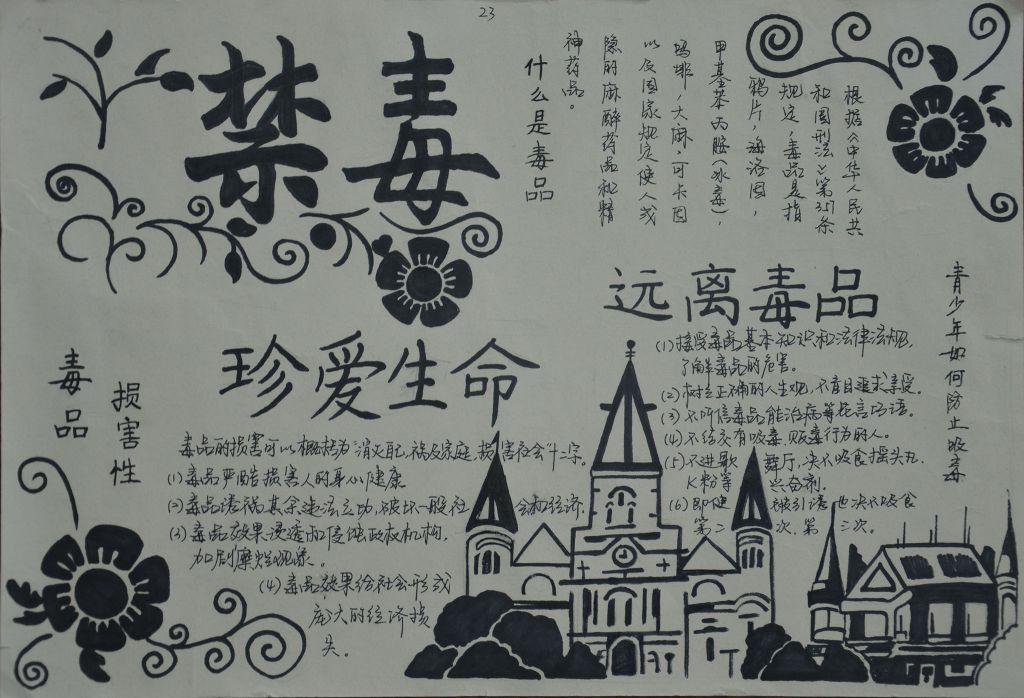 23
禁毒
什么是毒品
根据《中华人民共
和国刑法》第357条
规定，毒品是指
鸦片，海洛因，
甲基苯丙胺（冰毒），
吗啡，大麻，可卡因
以及国家规定使人成
瘾的麻醉药品和精
神药品。
远离毒品
青少年如何防止吸毒
(1)接受毒品基本知识和法律法规，
了解毒品的危害。
(2)树立正确的人生观，不盲目追求享受。
(3)不听信毒品能治病等花言巧语。
(4)不结交有吸毒，贩毒行为的人。
(5)不进歌 舞厅，决不吸食摇头丸，
K粉等 兴奋剂。
(6)即使 被引诱 也决不吸食
第二 次，第 三次。
珍爱生命
毒品
损害性
毒品的损害可以概括为"消灭自己，祸及家庭，损害社会"十二字。
(1)毒品严酷损害人的身心健康
(2)毒品诱祸其余违法 破坏一般社 会和经济.
(3)毒品效果浸透和侵蚀政权机构，
加剧糜烂现象。
(4)毒品效果给社会形成
庞大的经济损
失。